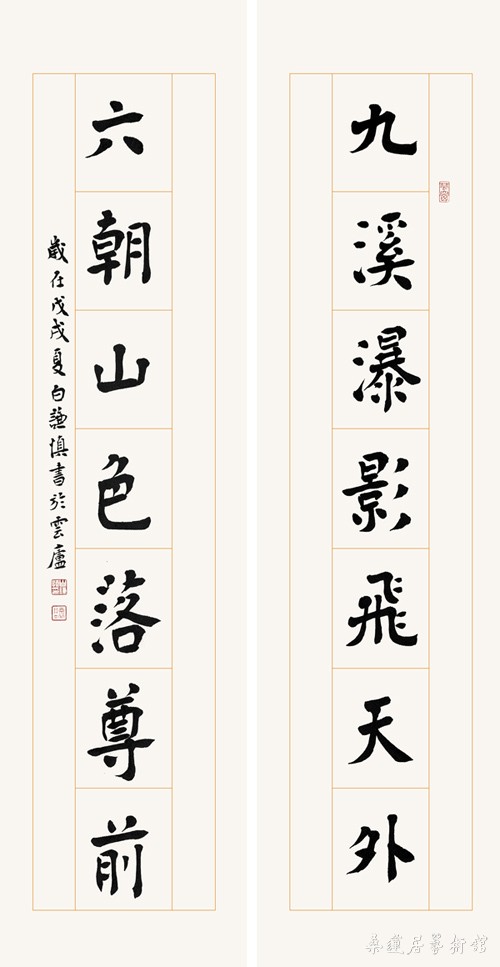 九溪瀑影飛天外
六朝山色落尊前
歲在戊戌夏白謙慎書於雲廬
桑蓮居藝術館